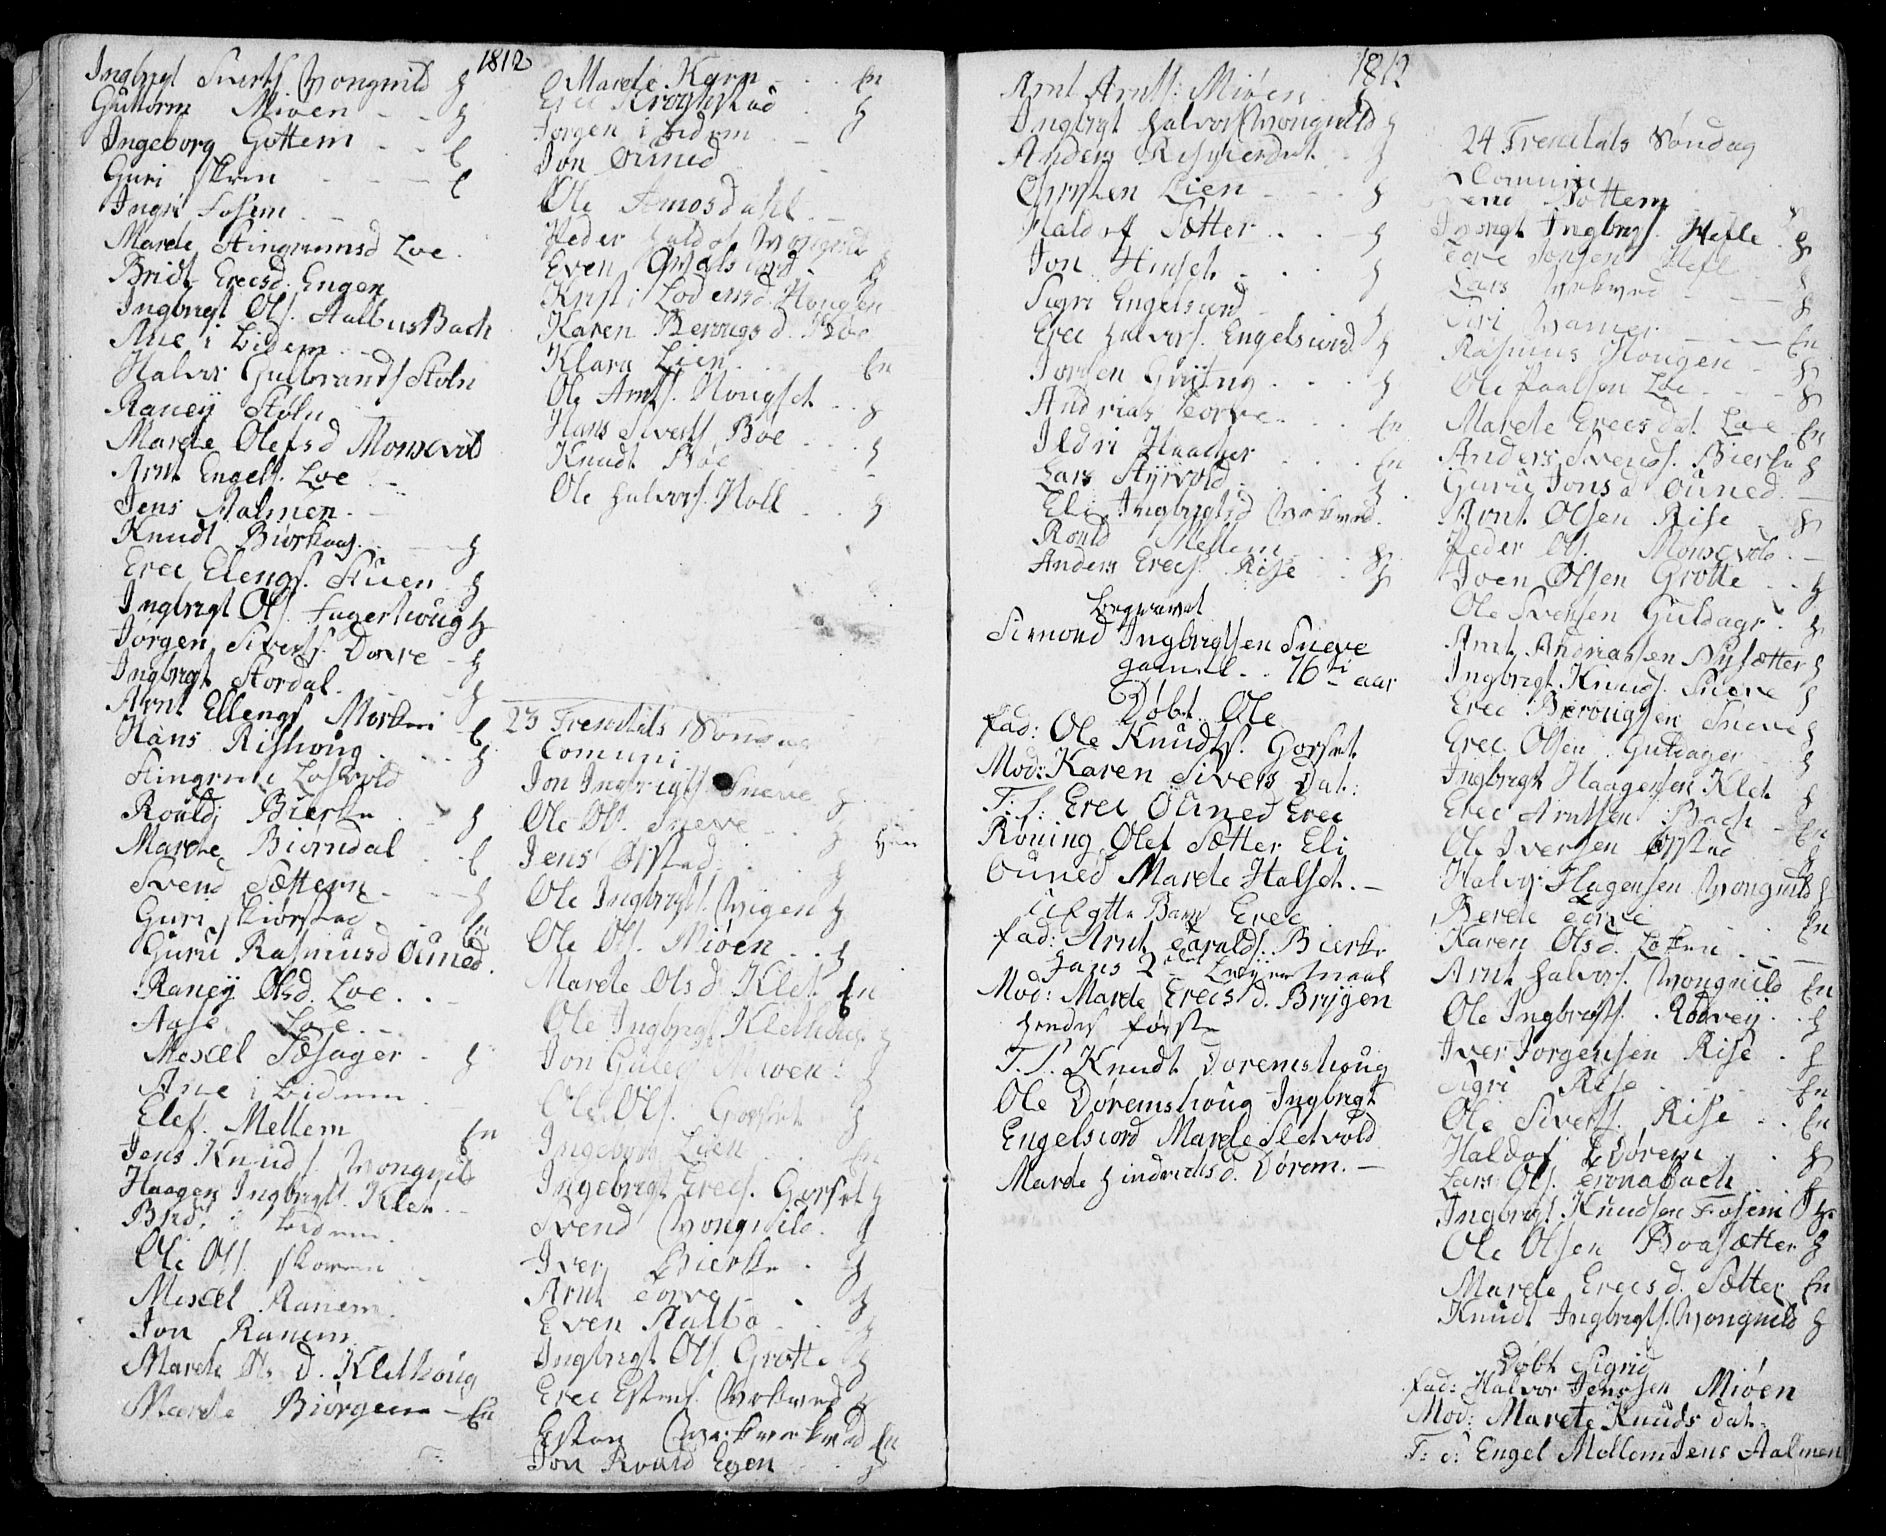 1812
Ingbrigt Siverts. Wongnild h
Guttorm Miöen - - h
Ingeborg Gottem - - E
Guri Skren - - - E
Ingri Fosem - -
Marete Stingrimsd Loe
Bridt Erecsd. Engen
Ingbrigt Ols. StalbusBach
Ane i Lidem -
Halvor Gulbrands Stöln
Raney Stöln
Marete Olefsd Monsevold
Arnt Engels. Loe - -
Jens Aalmen - -
Knudt Biörkaas - - h
Erec Elengs. Stuen - h
Ingbrigt Ols. Fagerhoug h
Jörgen Siverts. Dovre - h
Ingbrigt Stordal - - h
Arnt Ellengs. Morken E
Hans Rishoug - - h
Stingrim
Rouldj Bierke - h
Marete Biörndal - - E
Svend Sættern - - h
Guri Skiörstad - - En
Guru Rasmusd Ouned.
Raney Olsd. Loe. - -
Aase Loe. -
Mexcel Sæsager - h
Ane i Lidem -
Elef. Mellem En
Jens Knuds. Wongnild
Haagen Ingbrigts. Klet. -
Brid. i Lidem.
Ole Ols. Skoren
Mexcel Ranem.
Jon Ranem.
Marete Ols D. Klethoug
Marete Biörgen - En
Marete Karn - - En
Erec Krogstad - h
Jörgen i Lidem - - E
Jon Ouned -
Ole Amosdahl. -
Peder Haldos. Wongnild
Even
Kirsti Lodensd. Hougen
Karen Berougsd. Boe
Klara Lien. - En
Ole Arnts. Hougset - - h
Hans Siverts Boe - - h
Knudt Boe - h
Ole Halvors. Holl - - h
23 Trenitatis Söndag
Comuni
Jon Ingbrigts. Sneve h
Ole Ols. Sneve - - h
Jens Örstad - h
Ole Ingbrigts. Wigen h
Ole Ols. Miöen - - h
Marete Ols D. Klet En
Ole Ingbrigts. Klethoug h
Jon Miöen : h
Ole Ols. Gorset h
Ingeborg Lien - En
Ingebrigt Erecs. Gorset h
Svend Wongnild. h
Iver Bierke - h
Arnt Torve - - h
Even Kalbo - - h
Ingbrigt Ols. Grotte h
Erec Estens. Wekved h
Esten En
Jon Rould Egen h
1812
Arnt Arnts: Miöen
Ingbrigt Halvors. Wongnild h
Anders Rishierdet. - h
Christen Lien - - - h
Haldof Sætter - - - h
Jon Hinset - - - h
Sigri Engelsiord
Erec Halvors. Engelsiord h
Jörgen Gryting - - - h
Andrias Torve - - - En
Ildri Haacker - - - En
Lars Styrvold - - - h
Eli Ingbrigtsd Wekved
Rould Mellem - - h
Anders Erecs. Rise - - h
Begravet
Simond Ingbrigtsen Sneve
gammel. . 76 aar
Döbt Ole
fad: Ole Knudts. Gorset
Mod: Karen Sivers Dat:
T: f: Erec Ouned Erec
Roning Olef Sætter Eli
Ouned Marete Halset. -
Uægtte Barn Erec
fad: Arnt Taralds. Bierke
hans 2det Leyermaal
Mod: Marete Erecsd. Brygen
hendes förste
T. f. Knudt Doremshoug
Ole Döremshoug Ingbrigt
Engelsiord Marete Sletvold
Marete Hindrichsd. Dörem. -
24 Trenitatis Söndag
Comuni
Svend Sottem
Ingbrigt Ingbrigs. Hefle - h
Tore Jonsen Hefle
Lars Wekved - - h
Siri - - - En
Rasmus Hougen - h
Ole Paalsen Loe - - - h
Marete Erecs dat. Loe En
Anders Svends. Bierke h
Guru Jonsd Ouned. -
Arnt Olsen Rise - h
Peder Ols. Monsevold -
Joen Olsen Grotte - - h
Ole Svensen Guldager h
Arnt Andriassen Nysætter h
Ingbrigt Knuds. Sneve h
Erec Berougsen Sneve h
Erec Olsen Guldager - h
Ingbrigt Haagensen Klet h
Erec Arntsen Bach - En
Ole Iversen Örstad h
Halvor Hagensen Wongnild h
Berete Torve - En
Karen Olsd. Loken - - -
Arnt Halvors. Wongnild En
Ole Ingbrigts. Rödvey - - h
Iver Jorgensen Rise - h
Sigri Rise - - - En
Ole Siverts. Rise - - En
Haldof Dörem - - h
Lars Ols. Tronabach h
Ingbrigt Knudsen Fosem h
Ole Olsen Boasætter h
Marete Erecs d. Sætter En
Knudt Ingbrigts. Wongnild h
Döbt Sigrid
fad: Halvor Jenssen Miöen
Mod: Marete Knuds dat.
T: f: Engel Mellem Jens Aalmen